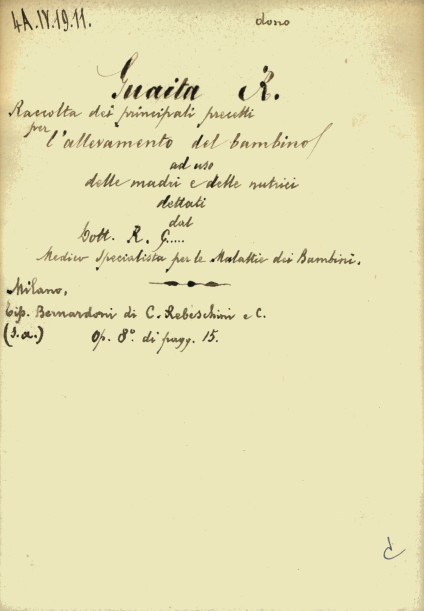 4A.IV.19.11.
dono
Guaita R.
Raccolta dei principali precetti
per l'allevamento del bambino
ad uso
delle madri e delle nutrici
dettati
dal
Dott. R. G.....
Medico Specialista per le Malattie dei Bambini.
Milano,
Tip. Bernardoni di C. Rebeschini e C.
(s.a.) Op. 8º. di pagg. 15.